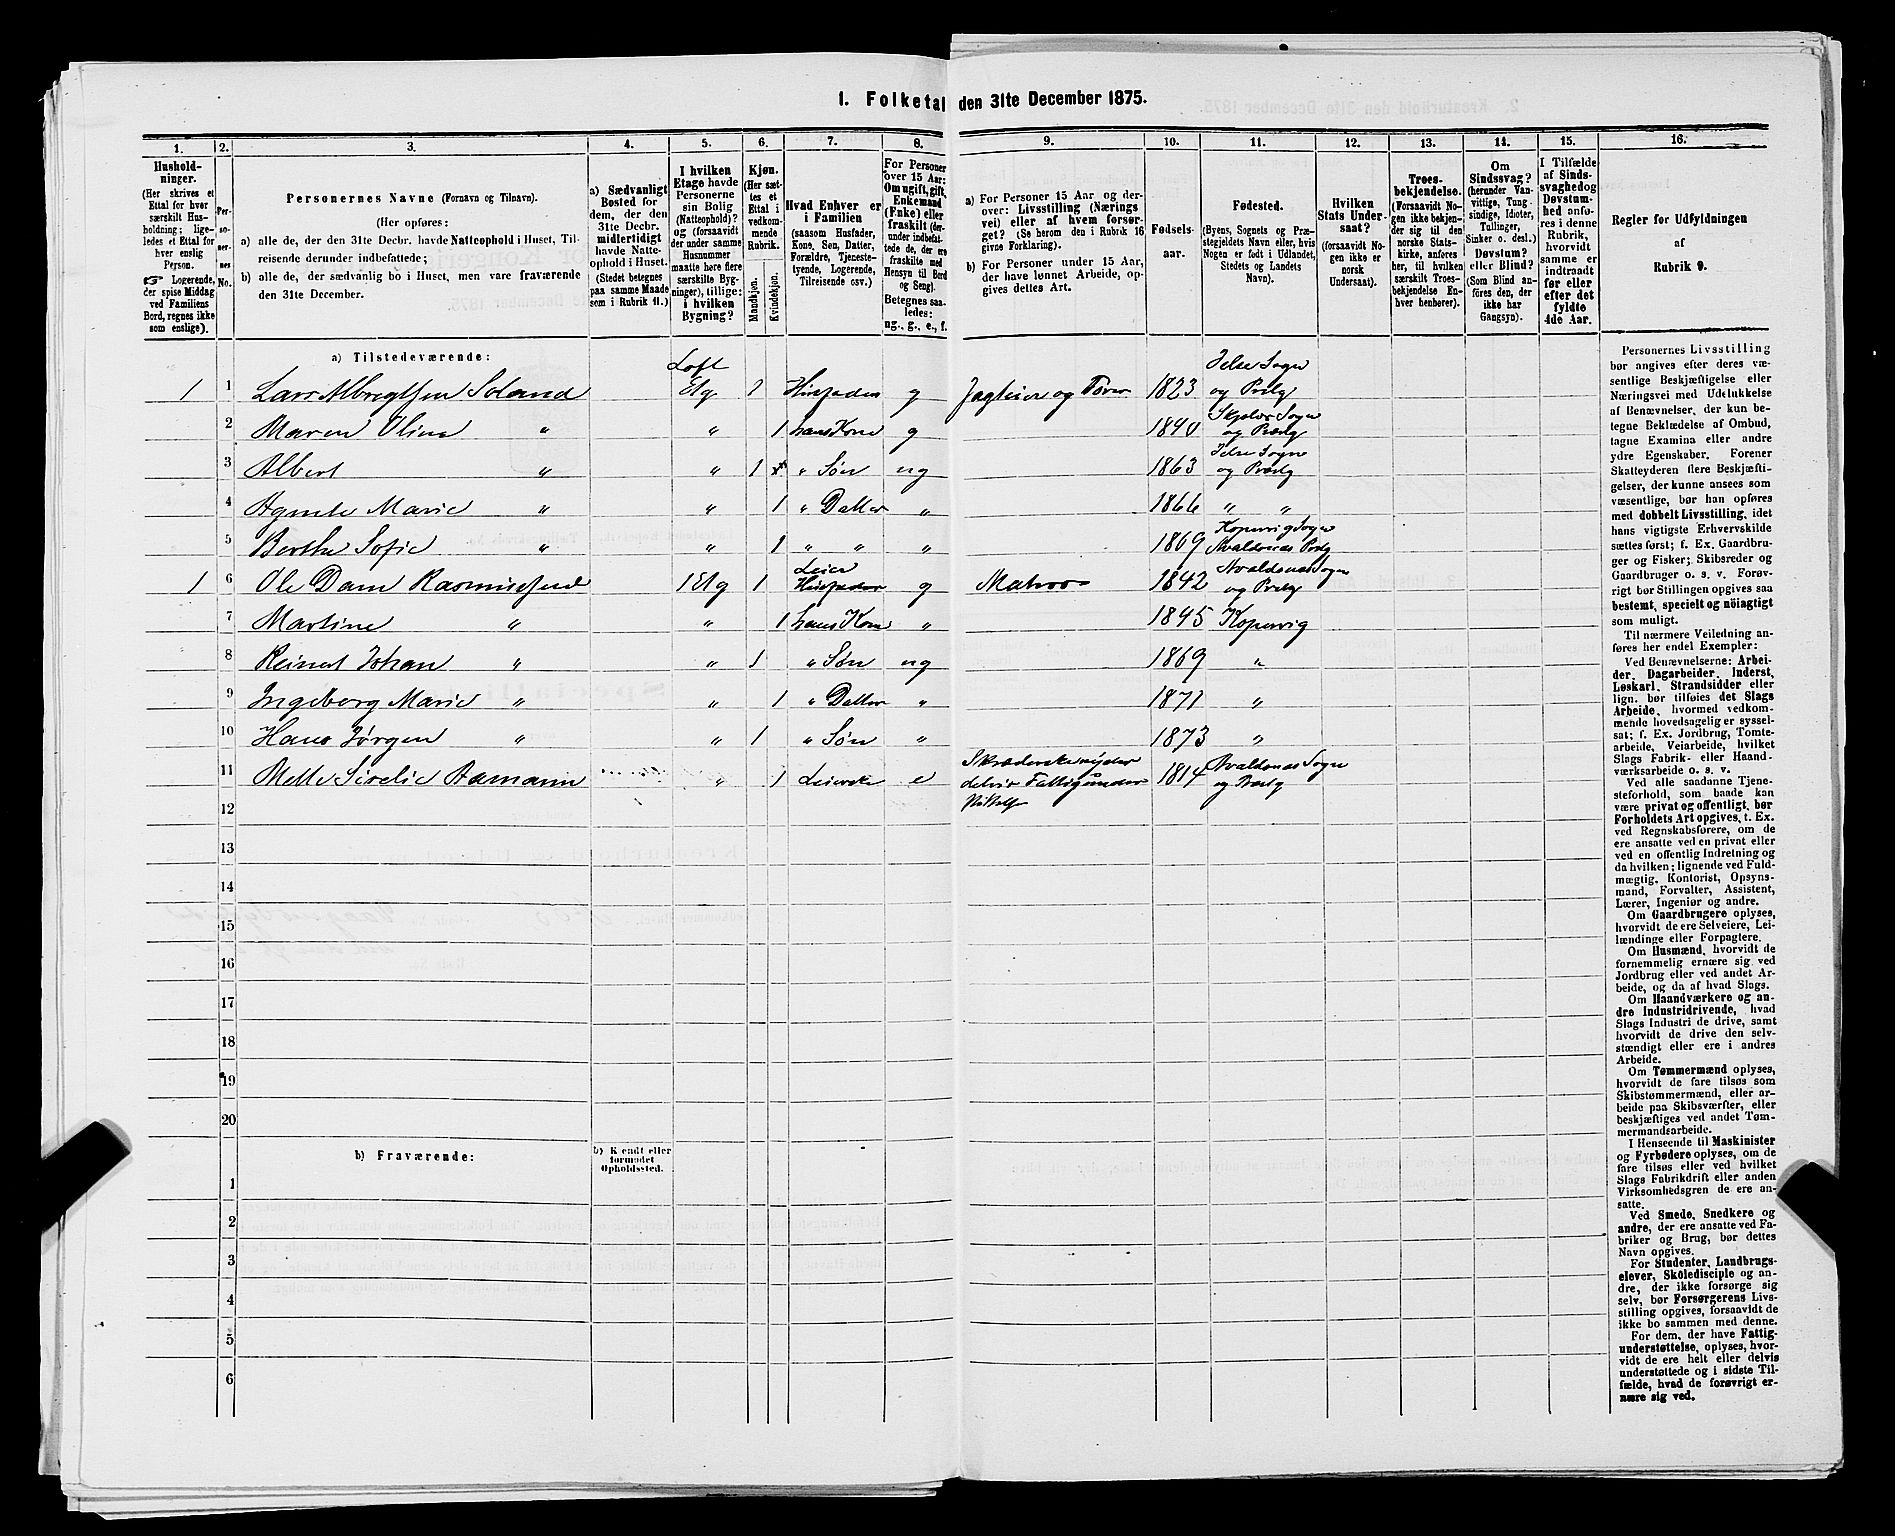 1. Folketal den 31te December 1875.
1.
2.
3.
4.
5.
6.
7.
8.
9.
10.
11.
12.
13.
14.
15.
16.
Hushold-
ninger.
(Her skrives et
Ettal for hver
særskilt Hus-
holdning; lige-
ledes et Ettal for
hver enslig
Person.
☞ Logerende,
der spise Middag
ved Familiens
Bord, regnes ikke
som enslige).
Per-
so-
ner-
nes
No.
Personernes Navne (Fornavn og Tilnavn).
(Her opføres:
a) alle de, der den 31te Decbr. havde Natteophold i Huset, Til-
reisende derunder indbefattede;
b) alle de, der sædvanlig bo i Huset, men vare fraværende
den 31te December.
a) Sædvanligt
Bosted for
dem, der den
31te Decbr.
midlertidigt
havde Natte-
ophold i Huset.
(Stedet betegnes
paa samme Maade
som i Rubrik 11.)
I hvilken
Etage havde
Personerne
sin Bolig
(Natteophold)?
og (forsaavidt
der under samme
Husnummer
maatte høre flere
særskilte Byg-
ninger), tillige:
i hvilken
Bygning?
Kjøn.
(Her sæt-
tes et
Ettal i
vedkom-
mende
Rubrik.
Mandkjøn.
Kvindekjøn.
Hvad Enhver er
i Familien
(saasom Husfader,
Kone, Søn, Datter,
Forældre, Tjeneste-
tyende, Logerende,
Tilreisende osv.)
For Personer
over 15 Aar:
Om ugift, gift,
Enkemand
(Enke) eller
fraskilt (der-
under indbefat-
tede de, der ere
fraskilte med
Hensyn til Bord
og Seng).
Betegnes saa-
ledes:
ug., g., e., f.
a) For Personer 15 Aar og der-
over: Livsstilling (Nærings-
vei) eller af hvem forsør-
get? (Se herom den i Rubrik 16
givne Forklaring).
b) For Personer under 15 Aar,
der have lønnet Arbeide, op-
gives dettes Art.
Fødsels-
aar.
Fødested.
(Byens, Sognets og Præ-
stegjeldets Navn eller, hvis
Nogen er født i Udlandet,
Stedets og Landets
Navn).
Hvilken
Stats Under-
saat?
(forsaavidt No-
gen ikke er
norsk
Undersaat).
Troes-
bekjendelse.
(Forsaavidt No-
gen ikke bekjen-
der sig til den
norske Stats-
kirke, anføres
her, til hvilken
særskilt Troes-
bekjendelse En-
hver henhører).
Om
Sindssvag?
(herunder Van-
vittige, Tung-
sindige, Idioter,
Tullinger,
Sinker o. desl.)
Døvstum?
eller Blind?
(Som Blind an-
føres den, der
ikke har
Gangsyn).
I Tilfælde
af Sinds-
svaghed og
Døvstum-
hed anfø-
res i denne
Rubrik,
hvorvidt
samme er
indtraadt
før eller
efter det
fyldte
4de Aar.
Regler for Udfyldningen
af
Rubrik 9.
a) Tilstedeværende:
1 1 Lars Albregtsen Soland Loft Etg 1 Husfader g Jagteier og Fører 1823 Jelse Sogn og Prslg
2 Maren Oline " " 1 hans Kone g 1840 Skjolds Sogn og Præslg
3 Albert " " 1 " Søn ug 1863 Jelse Sogn og Præslg
4 Agnete Marie " " 1 " Datter " 1866 " "
5 Berthe Sofie " " 1 " " " 1869 Kopervig Sogn Avaldsnes Prslg
1 6 Ole Dam Rasmussen 1 Etg 1 Leier Husfader g Matros 1842 Avaldsnæs Sogn og Prslg
7 Martine " " 1 hans Kone " 1845 Kopervig
8 Reinert Johan " " 1 " Søn ug 1869 "
9 Ingeborg Marie " " 1 " Datter " 1871 "
10 Hans Jørgen " " 1 " Søn " 1873 "
11 Mette Serelie Aamann " 1 Leierske e Skræderske nyder delvis Fattigunder 1814 Avaldsnæs Sogn og Præslg
12
13
14
15
16
17
18
19
20
b) Fraværende:
b) Kjendt eller
formodet
Opholdssted.
1
2
3
4
5
6
Personernes Livsstilling
bør angives efter deres væ-
sentlige Beskjæftigelse eller
Næringsvei med Udelukkelse
af Benævnelser, der kun be-
tegne Beklædelse af Ombud,
tagne Examina eller andre
ydre Egenskaber. Forener
Skatteyderen flere Beskjæfti-
gelser, der kunne ansees som
væsentlige, bør han opføres
med dobbelt Livsstilling, idet
hans vigtigste Erhvervskilde
sættes først; f. Ex. Gaardbru-
ger og Fisker; Skibsreder og
Gaardbruger o. s. v. Forøv-
rigt bør Stillingen opgives saa
bestemt, specielt og nöiagtigt
som muligt.
Til nærmere Veiledning an-
føres her endel Exempler:
Ved Benævnelserne: Arbei-
der, Dagarbeider, Inderst,
Løskarl, Strandsidder eller
lign. bør tilføies det Slags
Arbeide, hvormed vedkom-
mende hovedsagelig er syssel-
sat; f. Ex. Jordbrug, Tomte-
arbeide, Veiarbeide, hvilket
Slags Fabrik- eller Haand-
værksarbeide o. s. v.
Ved alle saadanne Tjene-
steforhold, som baade kan
være privat og offentligt, bør
Forholdets Art opgives, t. Ex.
ved Regnskabsførere, om de
ere ansatte ved en privat eller
ved en offentlig Indretning og
da hvilken; lignende ved Fuld-
mægtig, Kontorist, Opsyns-
mand, Forvalter, Assistent,
Lærer, Ingeniør og andre.
Om Gaardbrugere oplyses,
hvorvidt de ere Selveiere, Lei-
lændinge eller Forpagtere.
Om Husmænd, hvorvidt de
fornemmelig ernære sig ved
Jordbrug eller ved andet Ar-
beide, og da af hvad Slags.
Om Haandværkere og an-
dre Industridrivende, hvad
Slags Industri de drive, samt
hvorvidt de drive den selv-
stændigt eller ere i andres
Arbeide.
Om Tømmermænd oplyses,
hvorvidt de fare tilsøs som
Skibstømmermænd, eller ar-
beide paa Skibsværfter, eller
beskjæftiges ved andet Tøm-
mermandsarbeide.
I Henseende til Maskinister
og Fyrbødere oplyses, om de
fare tilsøs eller ved hvilket
Slags Fabrikdrift eller anden
Virksomhedsgren de ere an-
satte.
Ved Smede, Snedkere og
andre, der ere ansatte ved Fa-
briker og Brug, bør dettes
Navn opgives.
For Studenter, Landbrugs-
elever, Skoledisciple og an-
dre, der ikke forsørge sig
selv, bør Forsørgerens Livs-
stilling opgives, forsaavidt de
ikke bo sammen med denne.
For dem, der have Fattig-
understøttelse, oplyses, hvor-
vidt de ere helt eller delvis
understøttede og i sidste Til-
fælde, hvad de forøvrigt er-
nære sig ved.